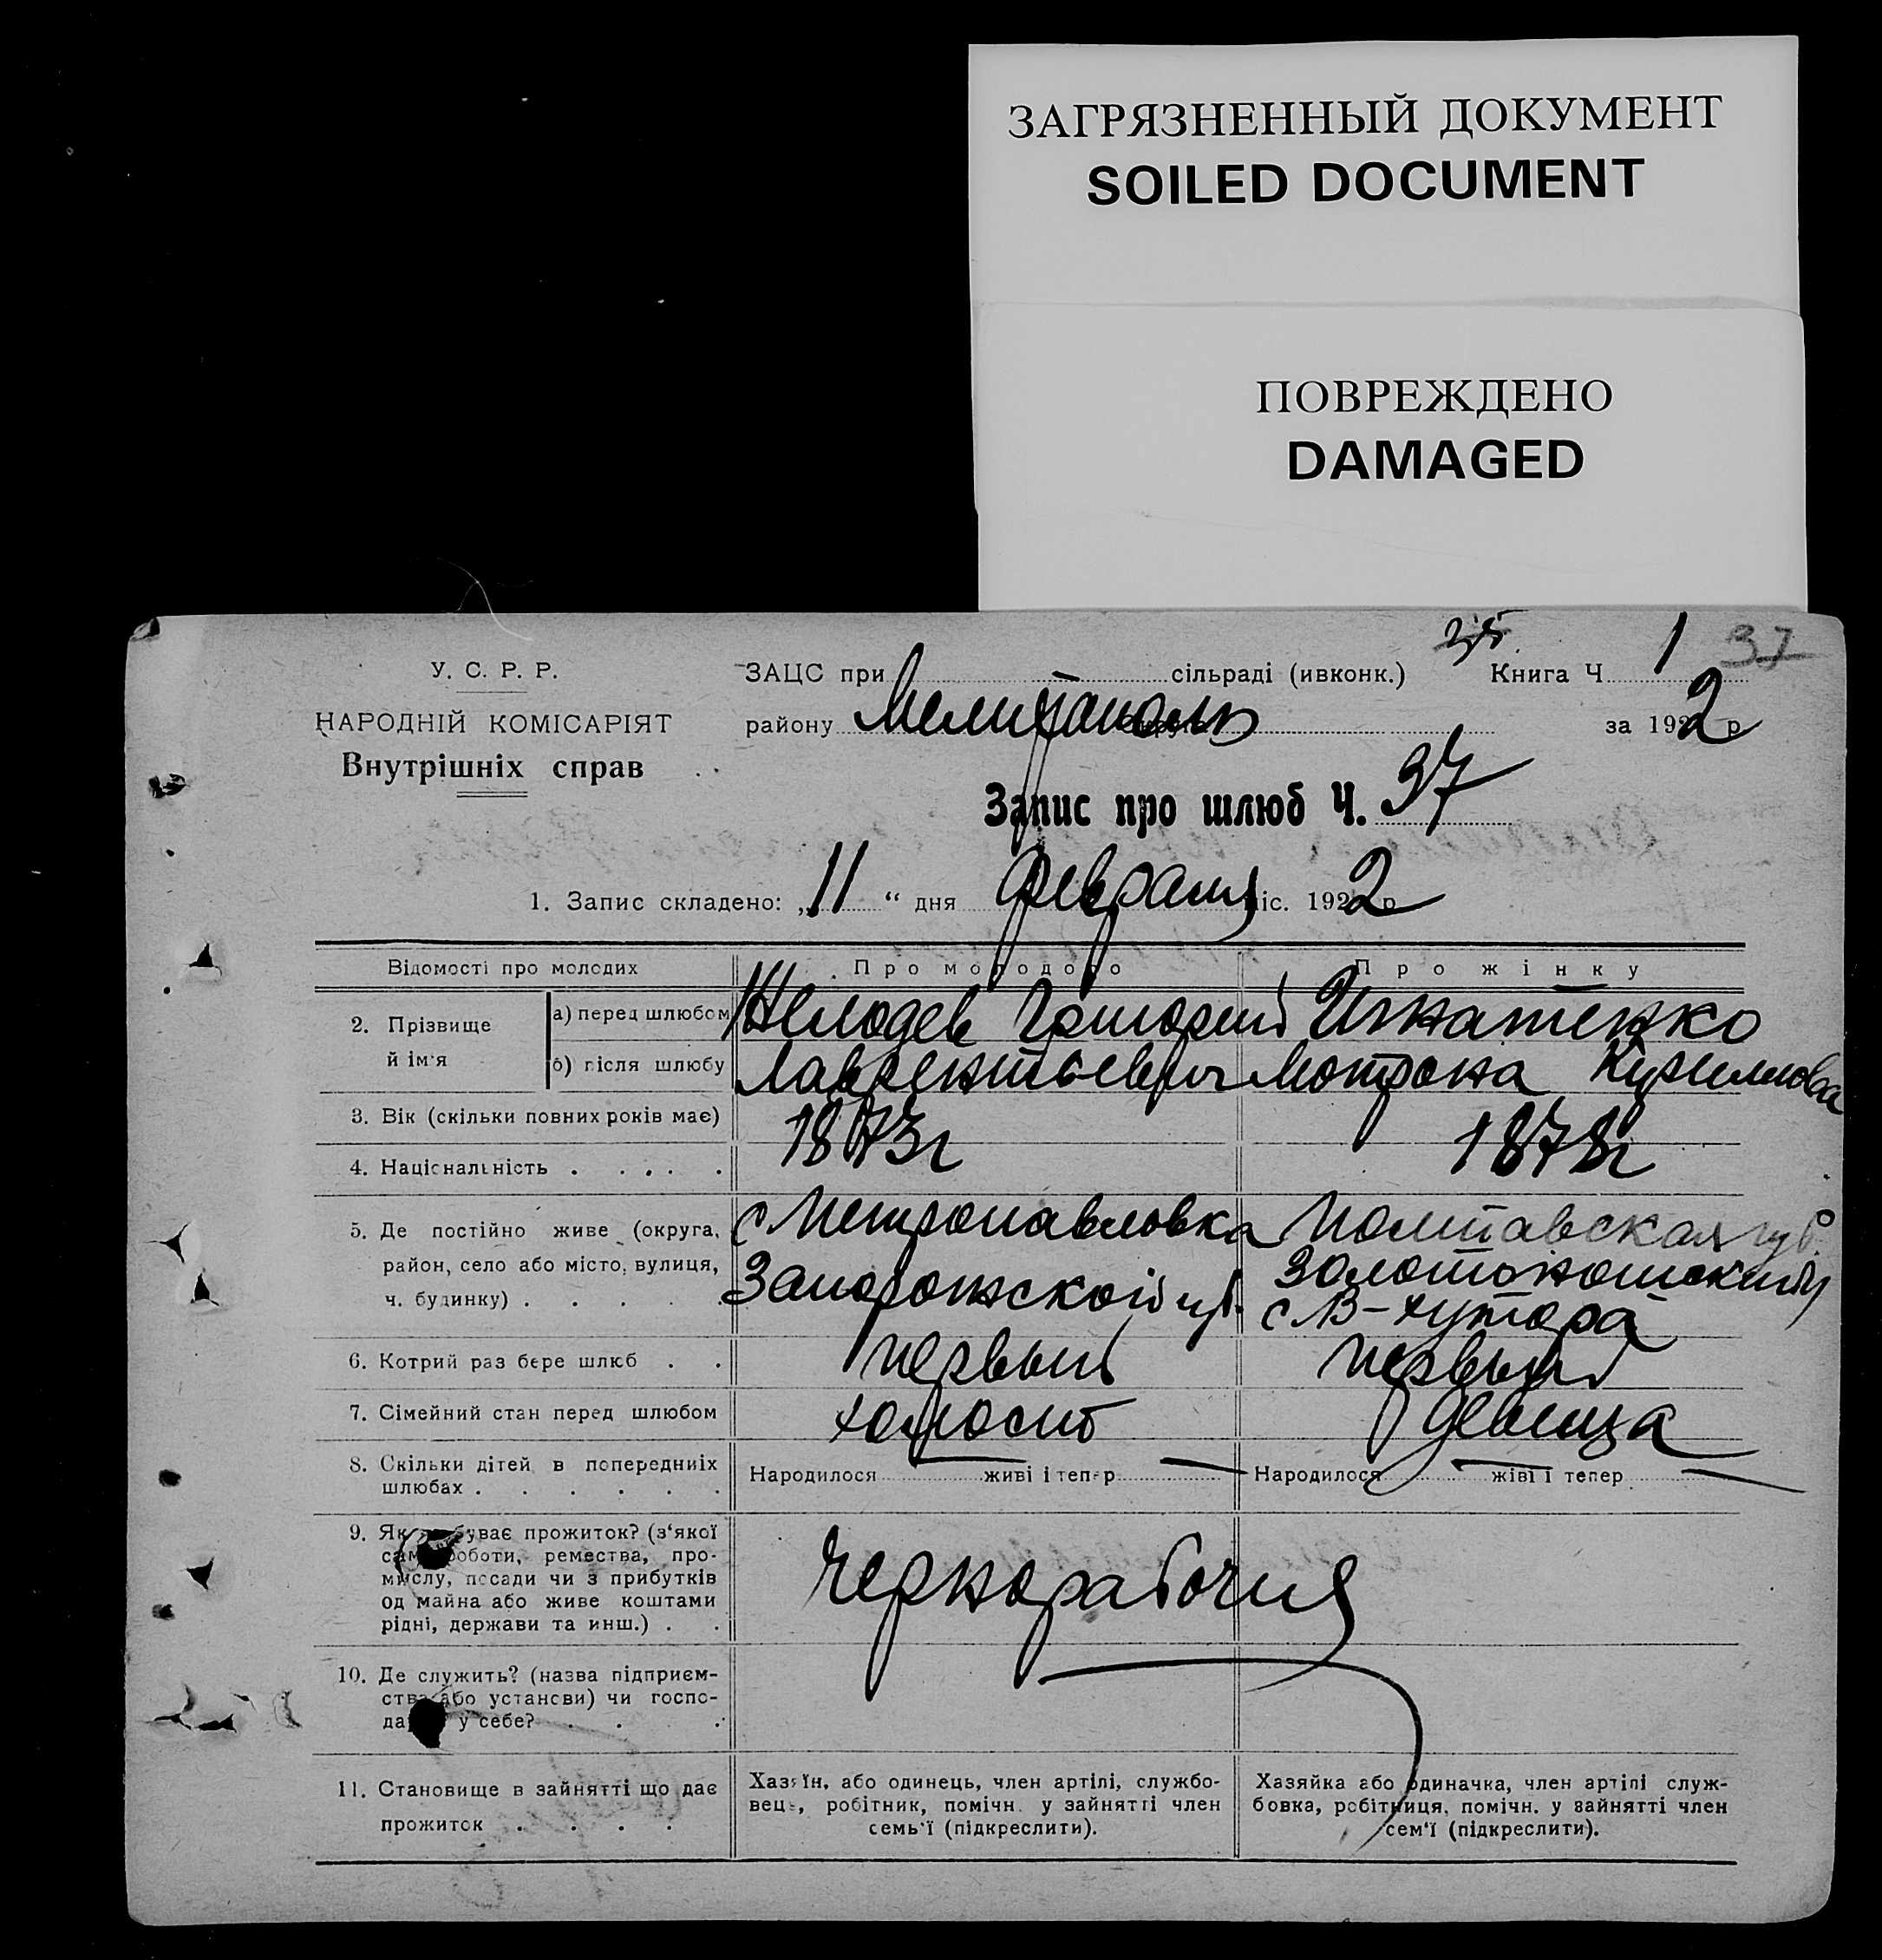 ЗАГРЯЗНЕННЫЙ ДОКУМЕНТ
SOILED DOCUMENT
ПОВРЕЖДЕНО
DAMAGED
37
У. С. Р. Р.
ЗАЦС при сільраді (ивконк.) Книга Ч 1
НАРОДНІЙ КОМІСАРІЯТ
району Мелитополь за 1922 р
Внутрішніх справ
Запис про шлюб Ч. 37
1. Запис складено: „11“ дня февраля міс. 1922 р
Відомості про молодих Про молодого Про жінку
2. Прізвище й ім'я
а) перед шлюбом Григорий Игнатенко
б) після шлюбу Лаврентьевич Мотрона
3. Вік (скільки повних років має) 1873г 1878г
4. Національність . . . . .
5. Де постійно живе (округа, с Петропавловка Полтавская губ.
район, село або місто, вулиця, Запорожской губ. Золотоношский у
ч. будинку) . . . . . с В-хутора
6. Котрий раз бере шлюб . . первый первый
7. Сімейний стан перед шлюбом холост девица
8. Скільки дітей в попередниіх Народилося — живі і тепер — Народилося — жіві і тепер —
шлюбах . . . . . .
9. Як буває прожиток? (з'якої
роботи, ремества, про-
мислу, посади чи з прибутків чернорабочий
од майна або живе коштами
рідні, держави та инш.) . .
10. Де служить? (назва підприєм-
ства або установи) чи госпо-
у себе? . . .
11. Становище в зайнятті що дає Хазяїн, або одинець, член артілі, службо- Хазяйка або одиначка, член артілі служ-
прожиток . . . . вець, робітник, помічн. у зайнятті член бовка, робітниця, помічн. у зайнятті член
семь'ї (підкреслити). сем'ї (підкреслити).